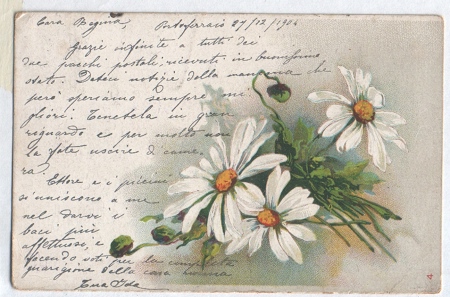 Cara Regina, Portoferraio 27/12/1904
Grazie infinite a tutti dei
due pacchi postali ricevuti in buonissimo
stato. Datemi notizie della mamma che
però speriamo sempre mi-
gliori. Tenetela in gran
riguardo e per molto non
la fate uscire di came-
ra.
Ettore e i piccini
si uniscono a me
nel darvi i
baci più
affettuosi, e
facendo voti per la completa
guarigione della cara mamma
Tua Ida